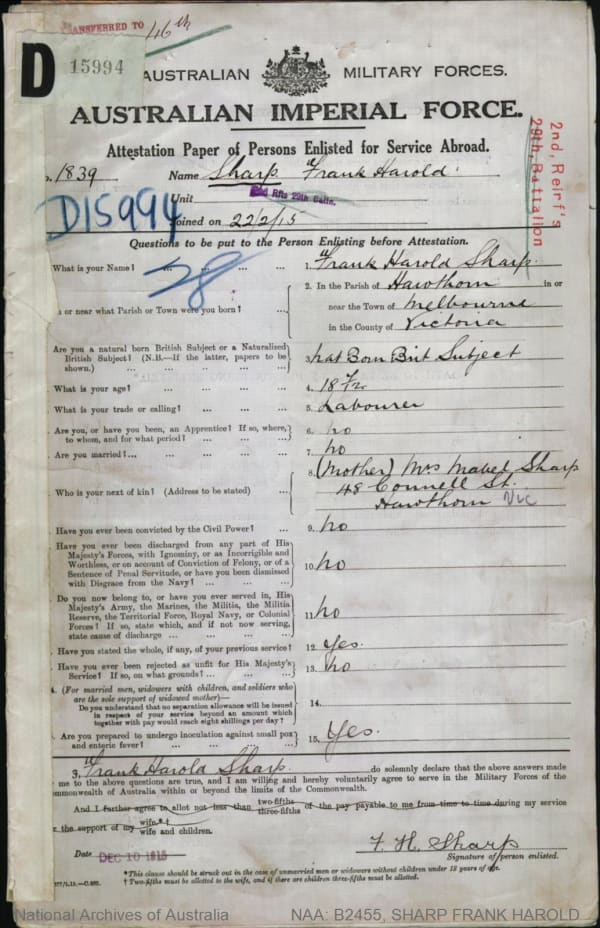 TRANSFERRED TO 46th
D 15994
AUSTRALIAN MILITARY FORCES.
AUSTRALIAN IMPERIAL FORCE.
Attestation Paper of Persons Enlisted for Service Abroad.
1839 Name Sharp Frank Harold.
Unit 2nd Rfts 29th Battn.
D15994
Joined on 22/2/15
2nd, Reirf's
29th, Battalion
Questions to be put to the Person Enlisting before Attestation.
28
What is your Name? ... ... ... 1. Frank Harold Sharp.
2. In the Parish of Hawthorn in or
or near what Parish or Town were you born? ... near the Town of Melbourne
in the County of Victoria
Are you a natural born British Subject or a Naturalized
British Subject? (N.B.—If the latter, papers to be
shown.) ... ... ... ... ... 3. Nat Born Brit Subject
What is your age? ... ... ... 4. 18 7/12
What is your trade or calling? ... ... ... 5. Labourer
Are you, or have you been, an Apprentice? If so, where,
to whom, and for what period? ... ... ... 6. no
Are you married? ... ... ... ... 7. no
8. (Mother) Mrs Mabel Sharp
Who is your next of kin? (Address to be stated) ... 48 Connell St.
Hawthorn Vic
Have you ever been convicted by the Civil Power? ... 9. no
Have you ever been discharged from any part of His
Majesty's Forces, with Ignominy, or as Incorrigible and
Worthless, or on account of Conviction of Felony, or of a
Sentence of Penal Servitude, or have you been dismissed
with Disgrace from the Navy? ... ... ... 10. no
Do you now belong to, or have you ever served in, His
Majesty's Army, the Marines, the Militia, the Militia
Reserve, the Territorial Force, Royal Navy, or Colonial
Forces? If so, state which, and if not now serving,
state cause of discharge ... ... ... ... 11. no
Have you stated the whole, if any, of your previous service? 12. Yes.
Have you ever been rejected as unfit for His Majesty's
Service? If so, on what grounds? ... ... ... 13. no
(For married men, widowers with children, and soldiers who
are the sole support of widowed mother)—
Do you understand that no separation allowance will be issued
in respect of your service beyond an amount which
together with pay would reach eight shillings per day? 14.
Are you prepared to undergo inoculation against small pox
and enteric fever? ... ... ... ... 15. Yes.
Frank Harold Sharp. do solemnly declare that the above answers made
me to the above questions are true, and I am willing and hereby voluntarily agree to serve in the Military Forces of the
mmonwealth of Australia within or beyond the limits of the Commonwealth.
And I further agree to allot not less than two-fifths three-fifths of the pay payable to me from time to time during my service
the support of my wife.*† wife and children.
F. H. Sharp
Date DEC 10 1915 Signature of person enlisted.
*This clause should be struck out in the case of unmarried men or widowers without children under 18 years of age.
† Two-fifths must be allotted to the wife, and if there are children three-fifths must be allotted.
National Archives of Australia NAA: B2455, SHARP FRANK HAROLD